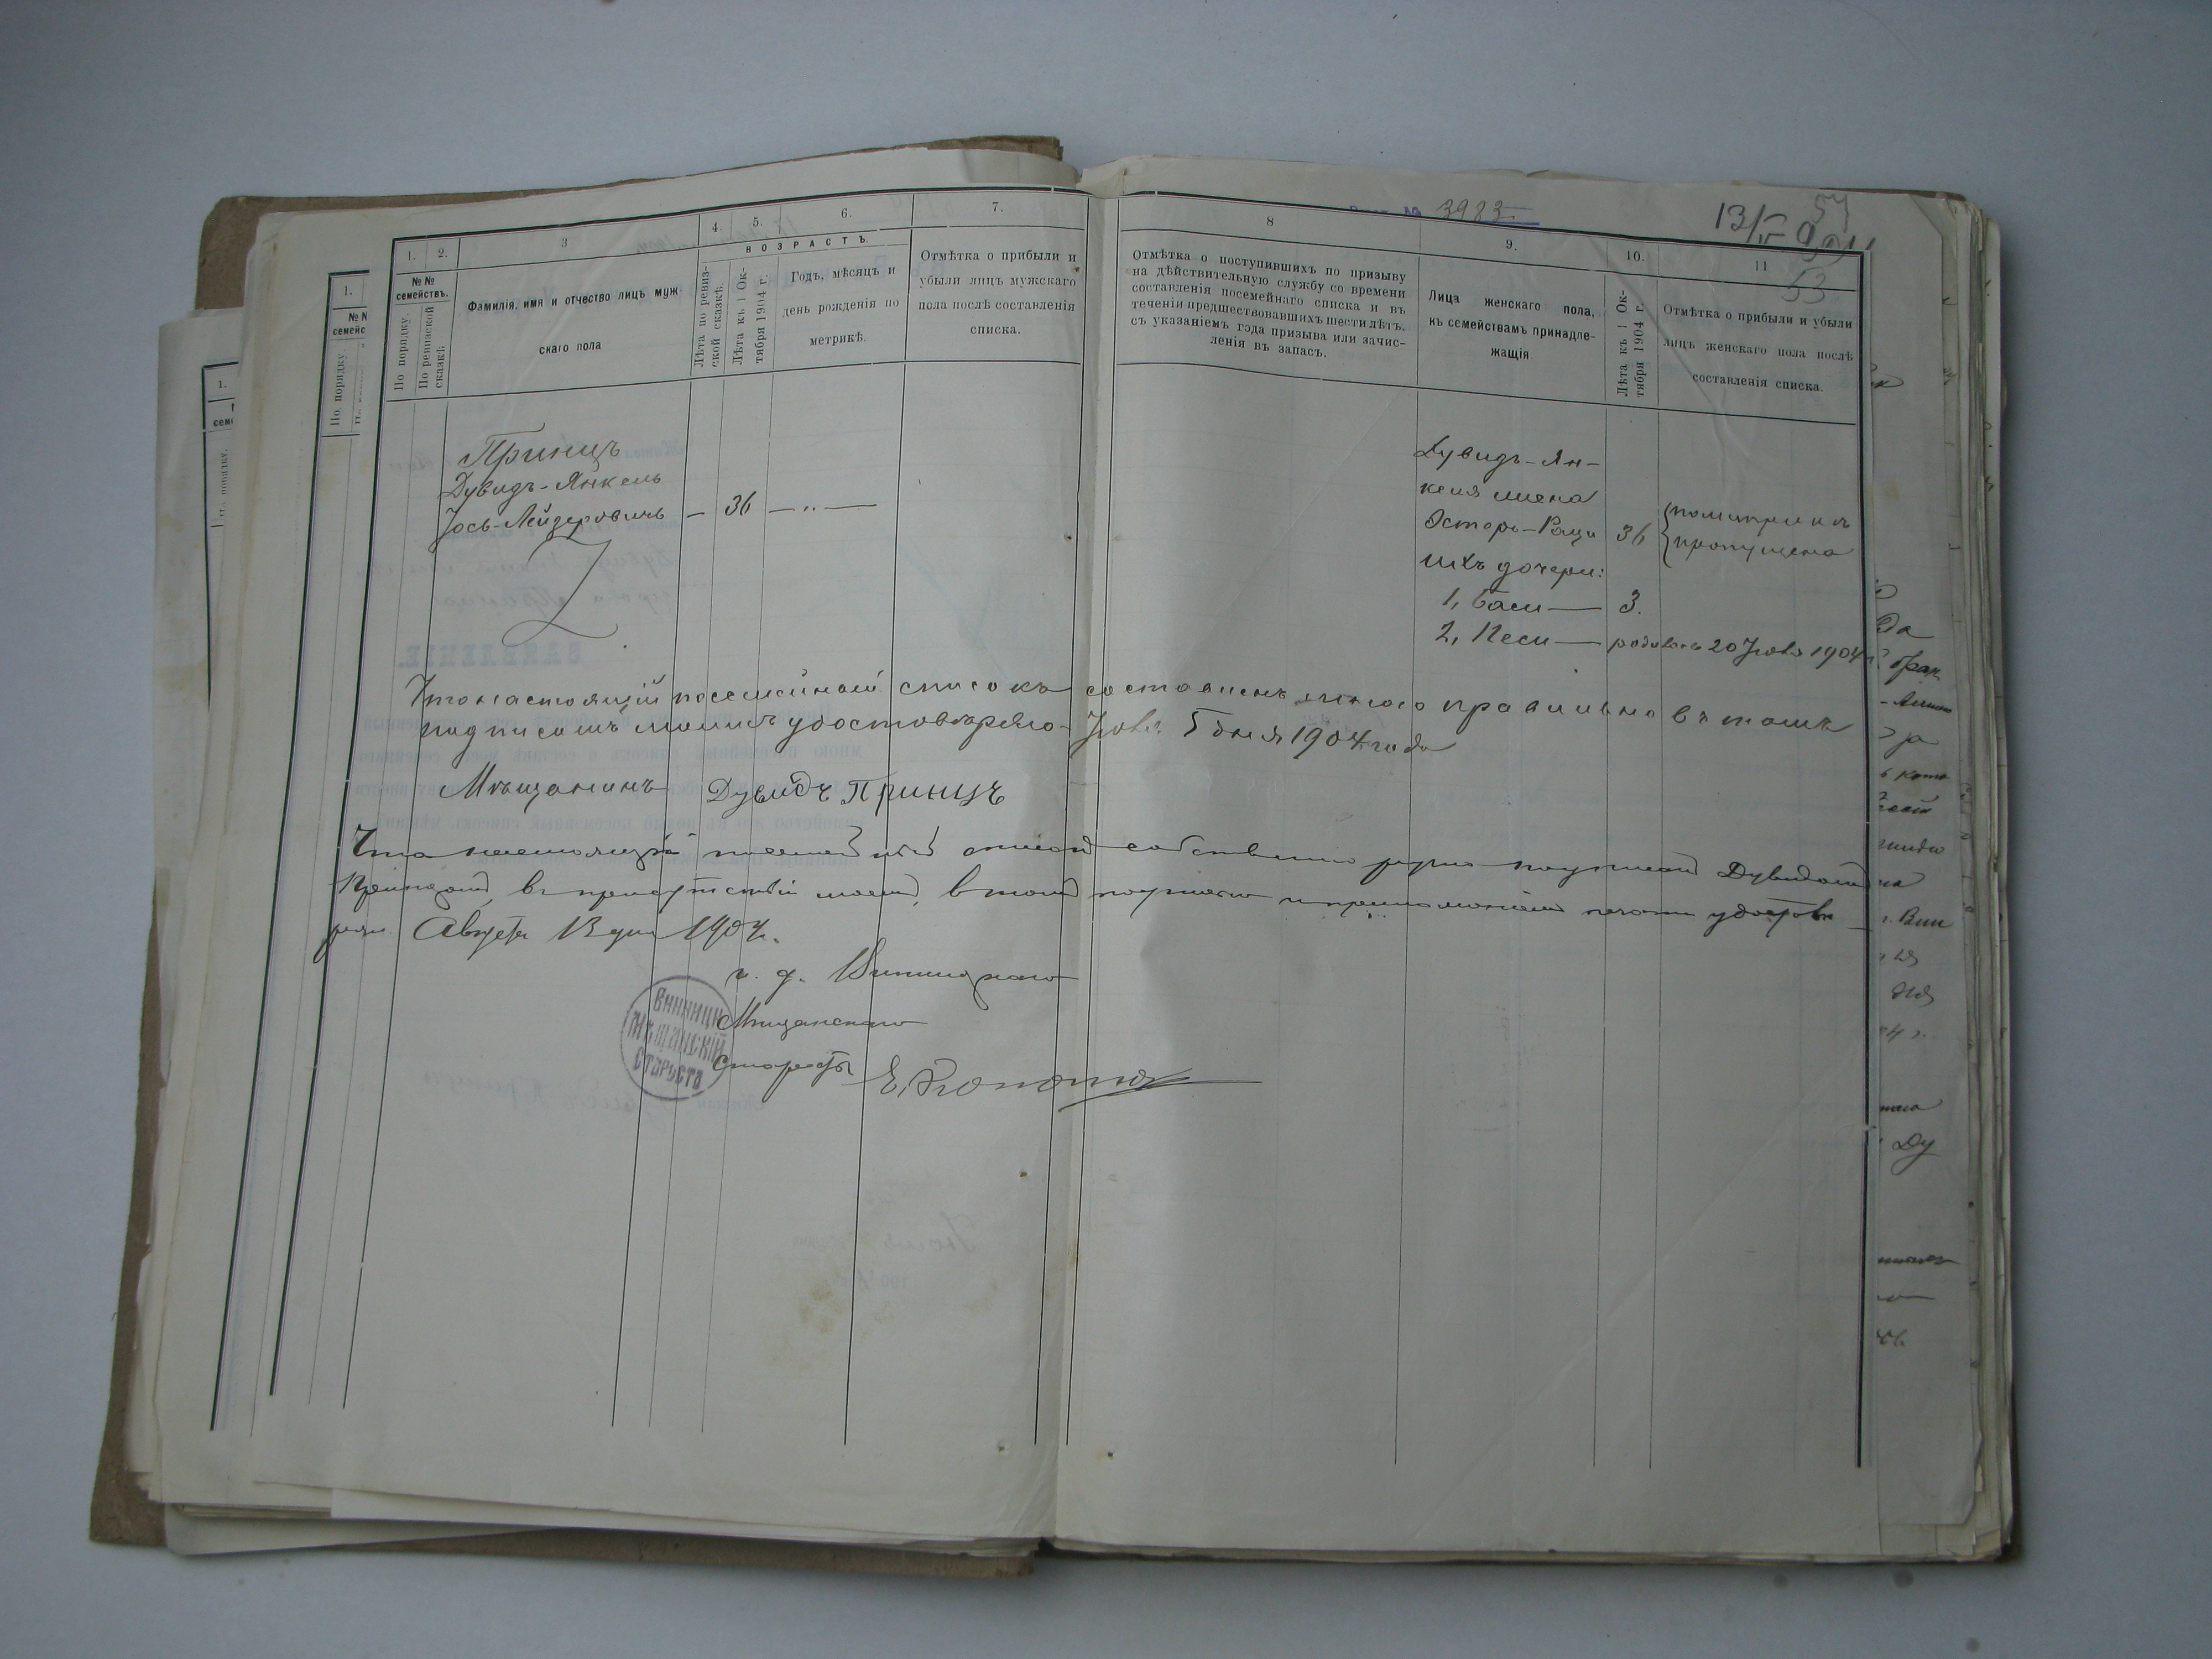 № 3983.
13/V 904
54
53
1.
2.
3
4.
5.
6.
7.
№№ семействъ.
По порядку.
По ревизской сказкѣ.
Фамилія, имя и отчество лицъ муж-
скаго пола
ВОЗРАСТЪ.
Лѣта по ревиз-
ской сказкѣ.
Лѣта къ 1 Ок-
тября 1904 г.
Годъ, мѣсяцъ и
день рожденія по
метрикѣ.
Отмѣтка о прибыли и
убыли лицъ мужскаго
пола послѣ составленія
списка.
8
9.
10.
11
Отмѣтка о поступившихъ по призыву
на дѣйствительную службу со времени
составленія посемейнаго списка и въ
теченіи предшествовавшихъ шести лѣтъ,
съ указаніемъ года призыва или зачис-
ленія въ запасъ.
Лица женскаго пола,
къ семействамъ принадле-
жащія
Лѣта къ 1 Ок-
тября 1904 г.
Отмѣтка о прибыли и убыли
лицъ женскаго пола послѣ
составленія списка.
Принцъ
Дувидъ-Янкель
Іось-Лейзеровичъ — 36 — „ —
Дувидъ-Ян-
келя жена
Эстеръ-Ращи 36
пропущена
ихъ дочери:
1, Баси — 3.
2, Песи — родилась 20 Іюля 1904 г.
Что настоящій посемейный списокъ составленъ мною правильно въ томъ
подписомъ моимъ удостовѣряю Іюля 5 дня 1904 года
Мѣщанинъ Дувидъ Принцъ
Что настоящій посемейный списокъ собственно ручно подписанъ Дувидомъ
Принцомъ въ присутствіи моемъ, въ томъ подписью и приложеніемъ печати удостовѣ-
ряю. Августа 13 дня 1904 г.
и. д. Винницкаго
Мѣщанскаго
Старосты
ВИННИЦКІЙ
МѢЩАНСКІЙ
СТАРОСТА